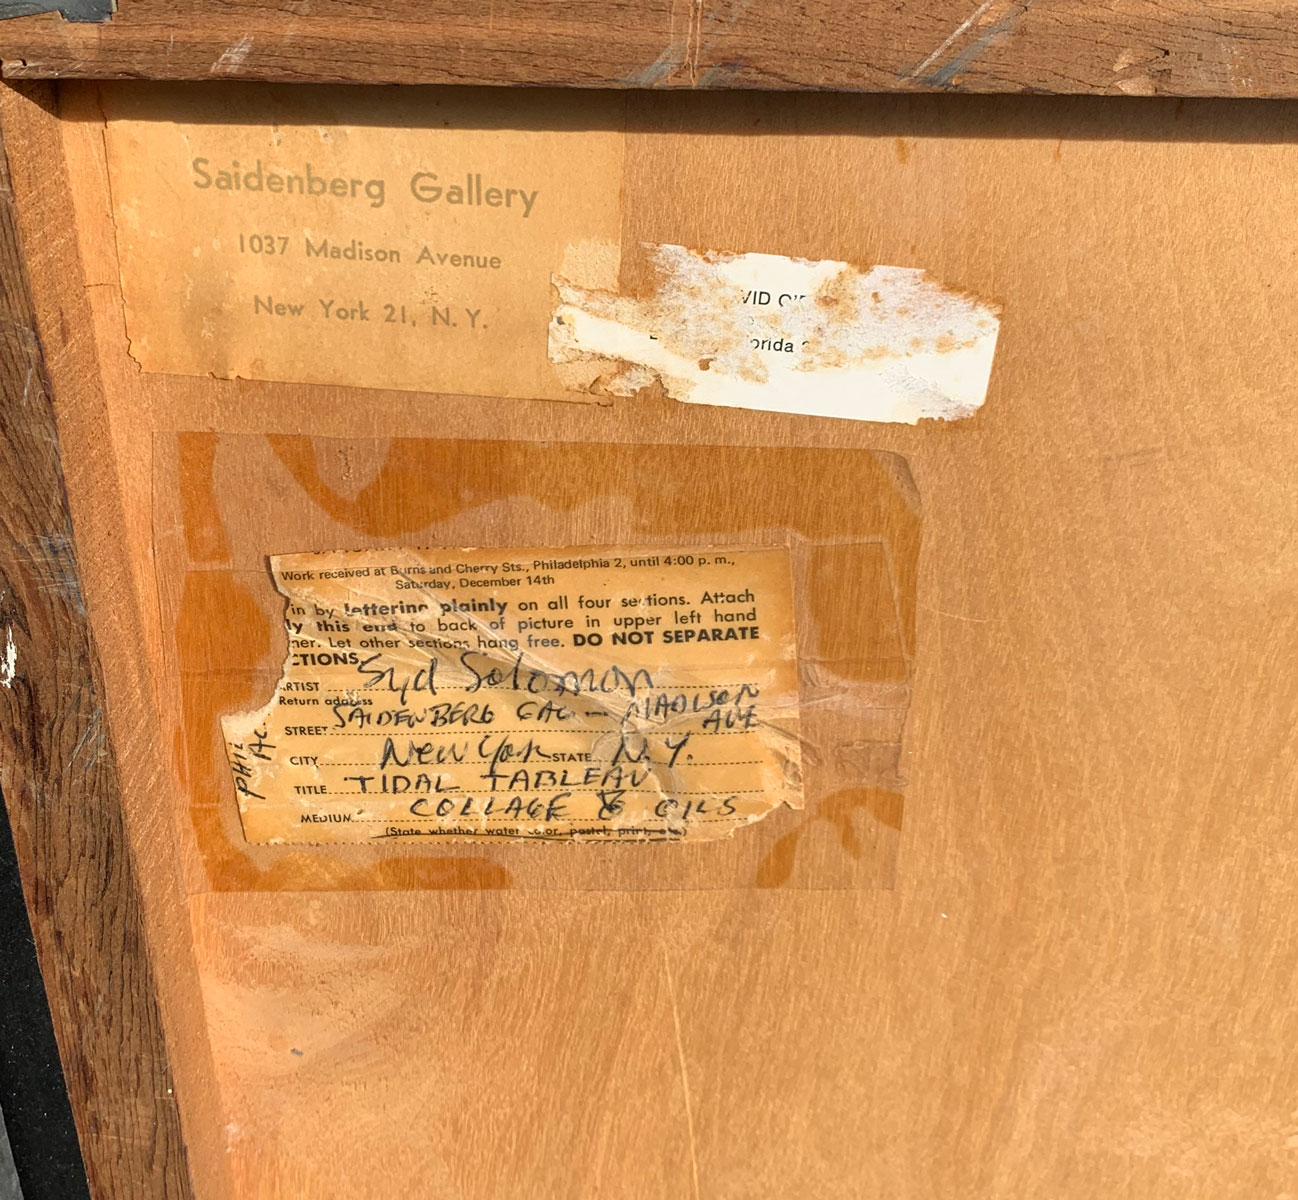 Saidenberg Gallery
1037 Madison Avenue
New York 21, N. Y.
VID O'
orida
Work received at Burns and Cherry Sts., Philadelphia 2, until 4:00 p. m.,
Saturday, December 14th
in by lettering plainly on all four sections. Attach
ly this end to back of picture in upper left hand
ner. Let other sections hang free. DO NOT SEPARATE
CTIONS
RTIST Syd Solomon
Return address
STREET SAIDENBERG GAL – MADISON AVE
CITY New York STATE N.Y.
TITLE TIDAL TABLEAU
MEDIUM COLLAGE & OILS
(State whether water color, pastel, print, etc.)
PHIL AC.